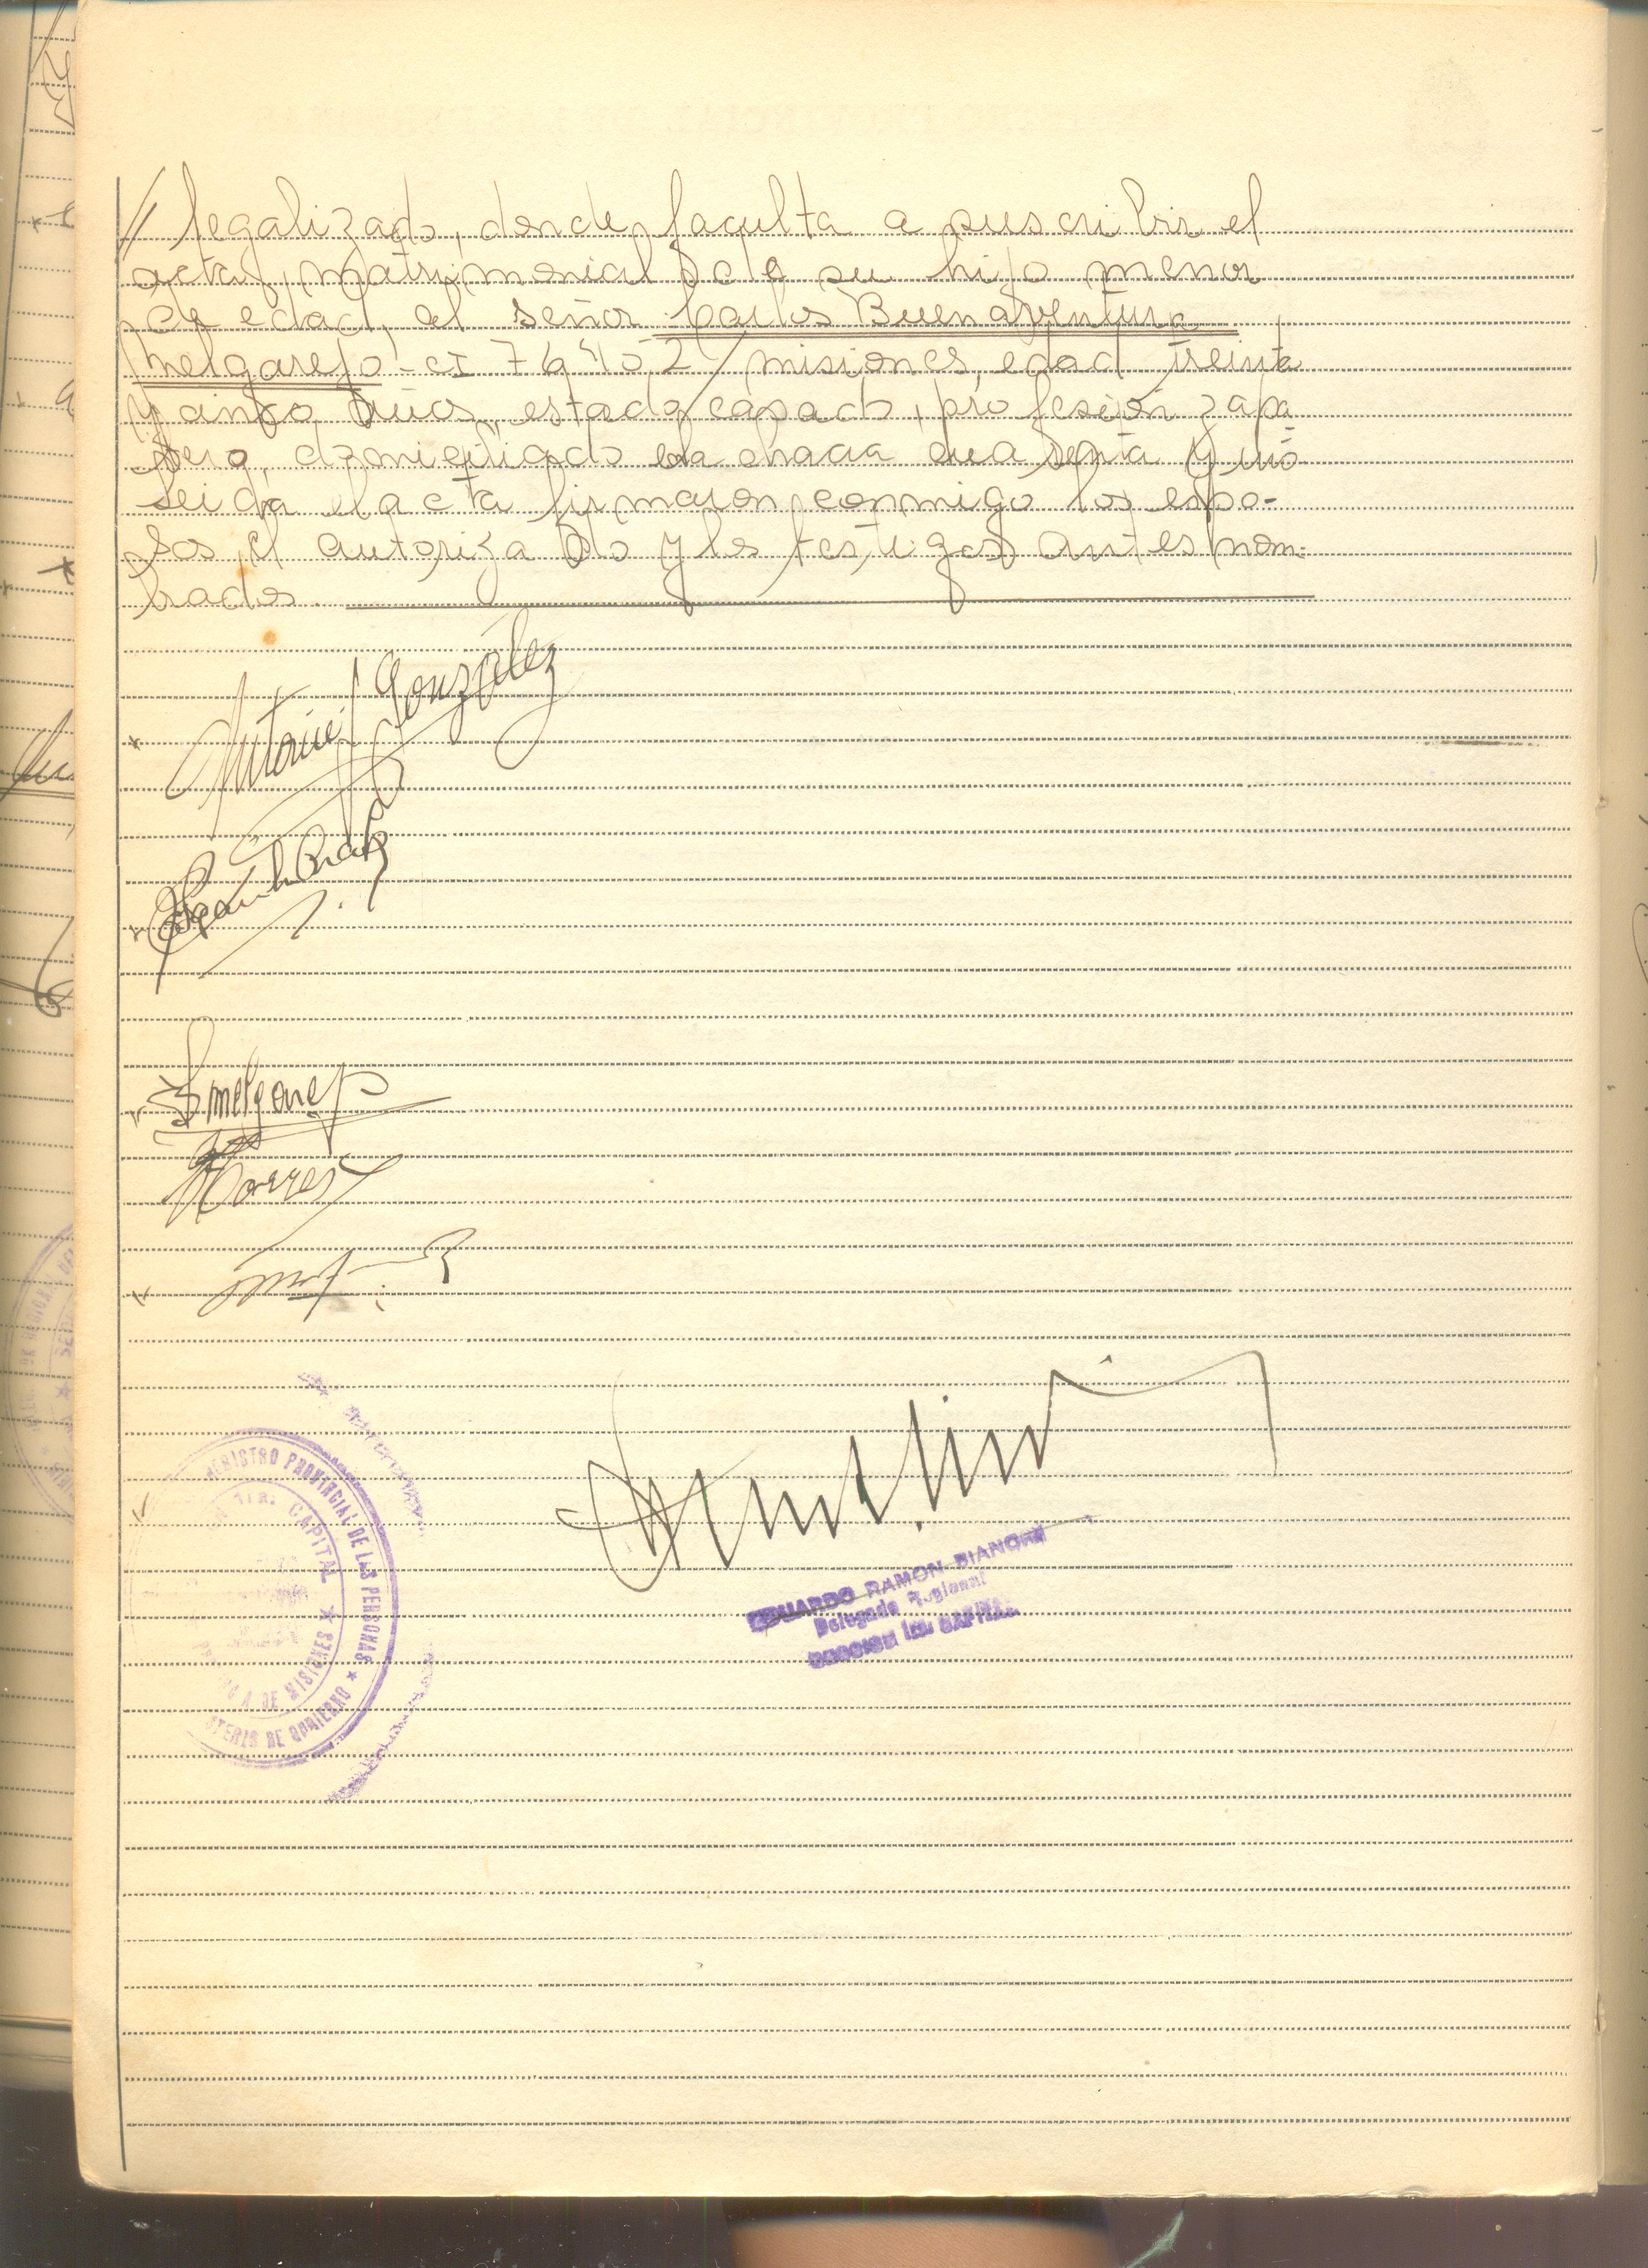 // legalizado, donde faculta a suscribir el
acta matrimonial de su hijo menor
de edad, al señor Carlos Buenaventura
Melgarejo - CI 769402/misiones, edad treinta
y cinco años, estado casado, profesión zapa-
tero, domiciliado chacra cuarenta y uno
Leida el acta firmaron conmigo los espo-
sos, el autorizado y los testigos antes nom-
brados.
Antonio González
Melgarejo
Torres
REGISTRO PROVINCIAL DE LAS PERSONAS
1ra. CAPITAL
DE MISIONES
DE GOBIERNO
EDUARDO RAMON BIANCHI
Delegado Regional
SECCION 1ra. CAPITAL